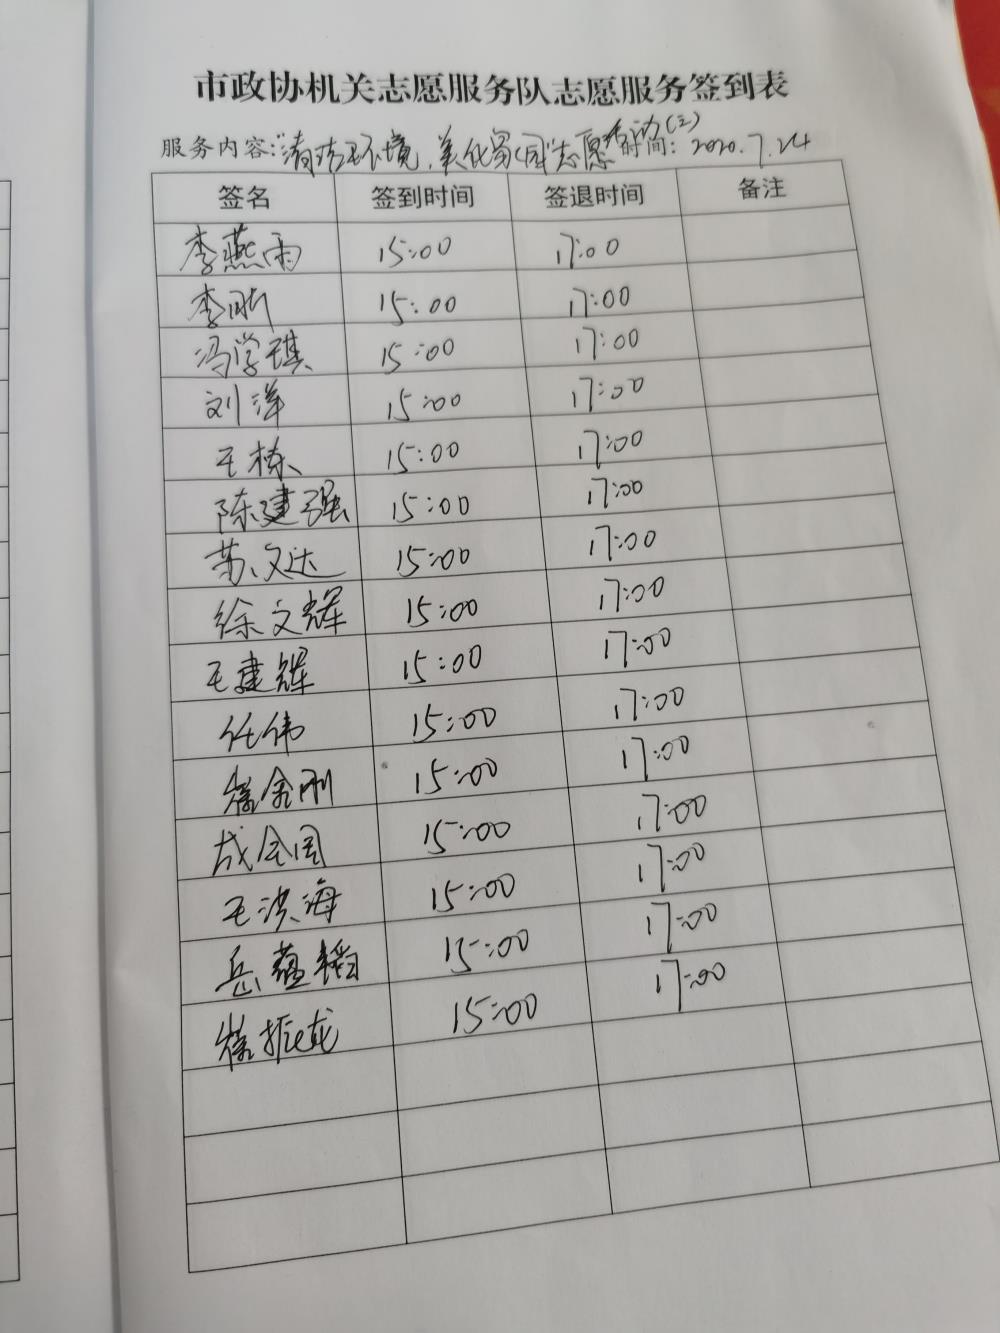 市政协机关志愿服务队志愿服务签到表
服务内容:"清洁环境,美化家园"志愿活动(三) 时间: 2020.7.24
签名 签到时间 签退时间 备注
李燕雨 15:00 17:00
李刚 15:00 17:00
冯学琪 15:00 17:00
刘洋 15:00 17:00
王栋 15:00 17:00
陈建强 15:00 17:00
苏文达 15:00 17:00
徐文辉 15:00 17:00
王建辉 15:00 17:00
任伟 15:00 17:00
金刚 15:00 17:00
成全国 15:00 17:00
王洪海 15:00 17:00
岳蕴韬 15:00 17:00
振龙 15:00 17:00